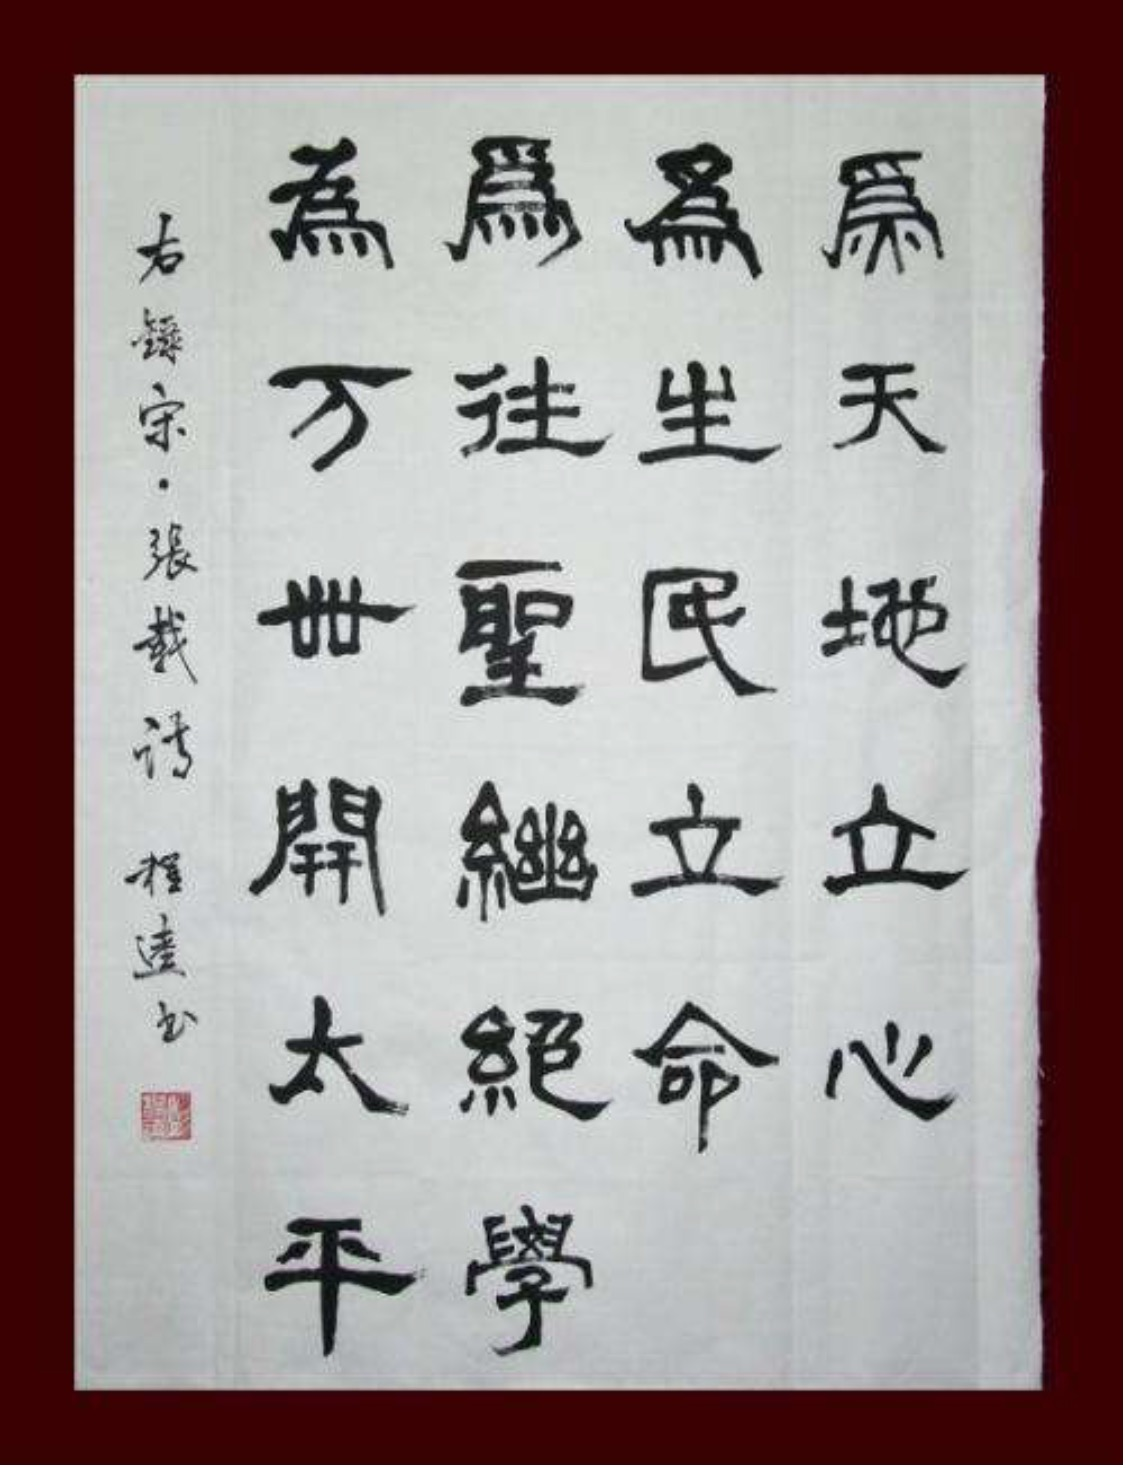 爲天地立心
爲生民立命
爲往聖繼絕學
為万世開太平
右錄宋·張載詩 程逵书